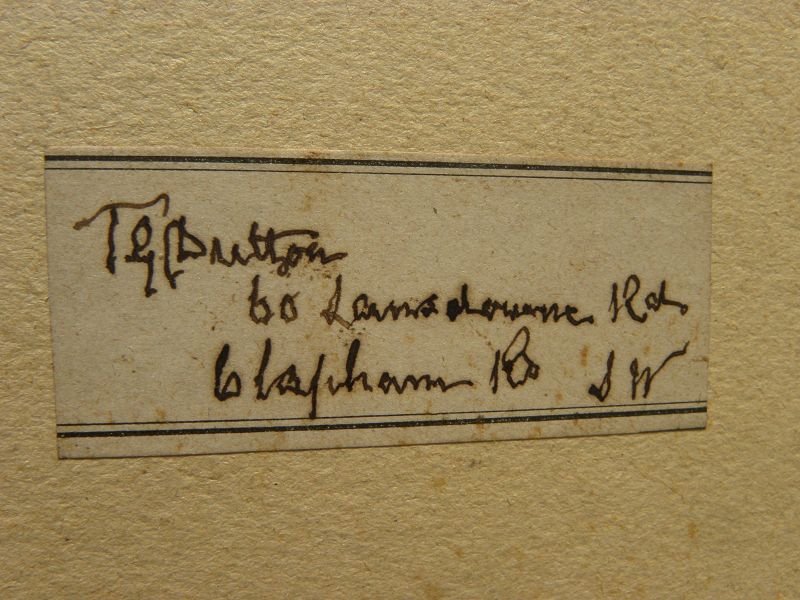 T G Dutton
60 Lansdowne Rd
Clapham Rd S W